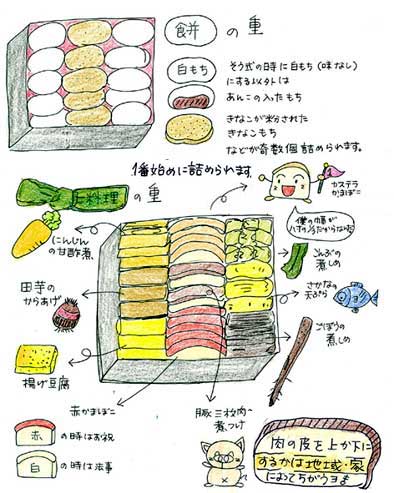 餅の重
白もち
そう式の日時に白もち(味なし)
にする以外は
あんこの入たもち
きなこが粉された
きなこもち
などが奇数個詰められます。
1番始めに詰められます
料理の重
カステラ
かまぼこ
にんじん
の甘酢煮
こんぶの
煮しめ
田芋の
からあげ
さかなの
天ぷら
ごぼうの
煮しめ
揚げ豆腐
赤かまぼこ
豚三枚肉の
煮つけ
赤 の時はお祝
白 の時は法事
肉の皮を上か下に
するかは地域・家
によってちがうヨ